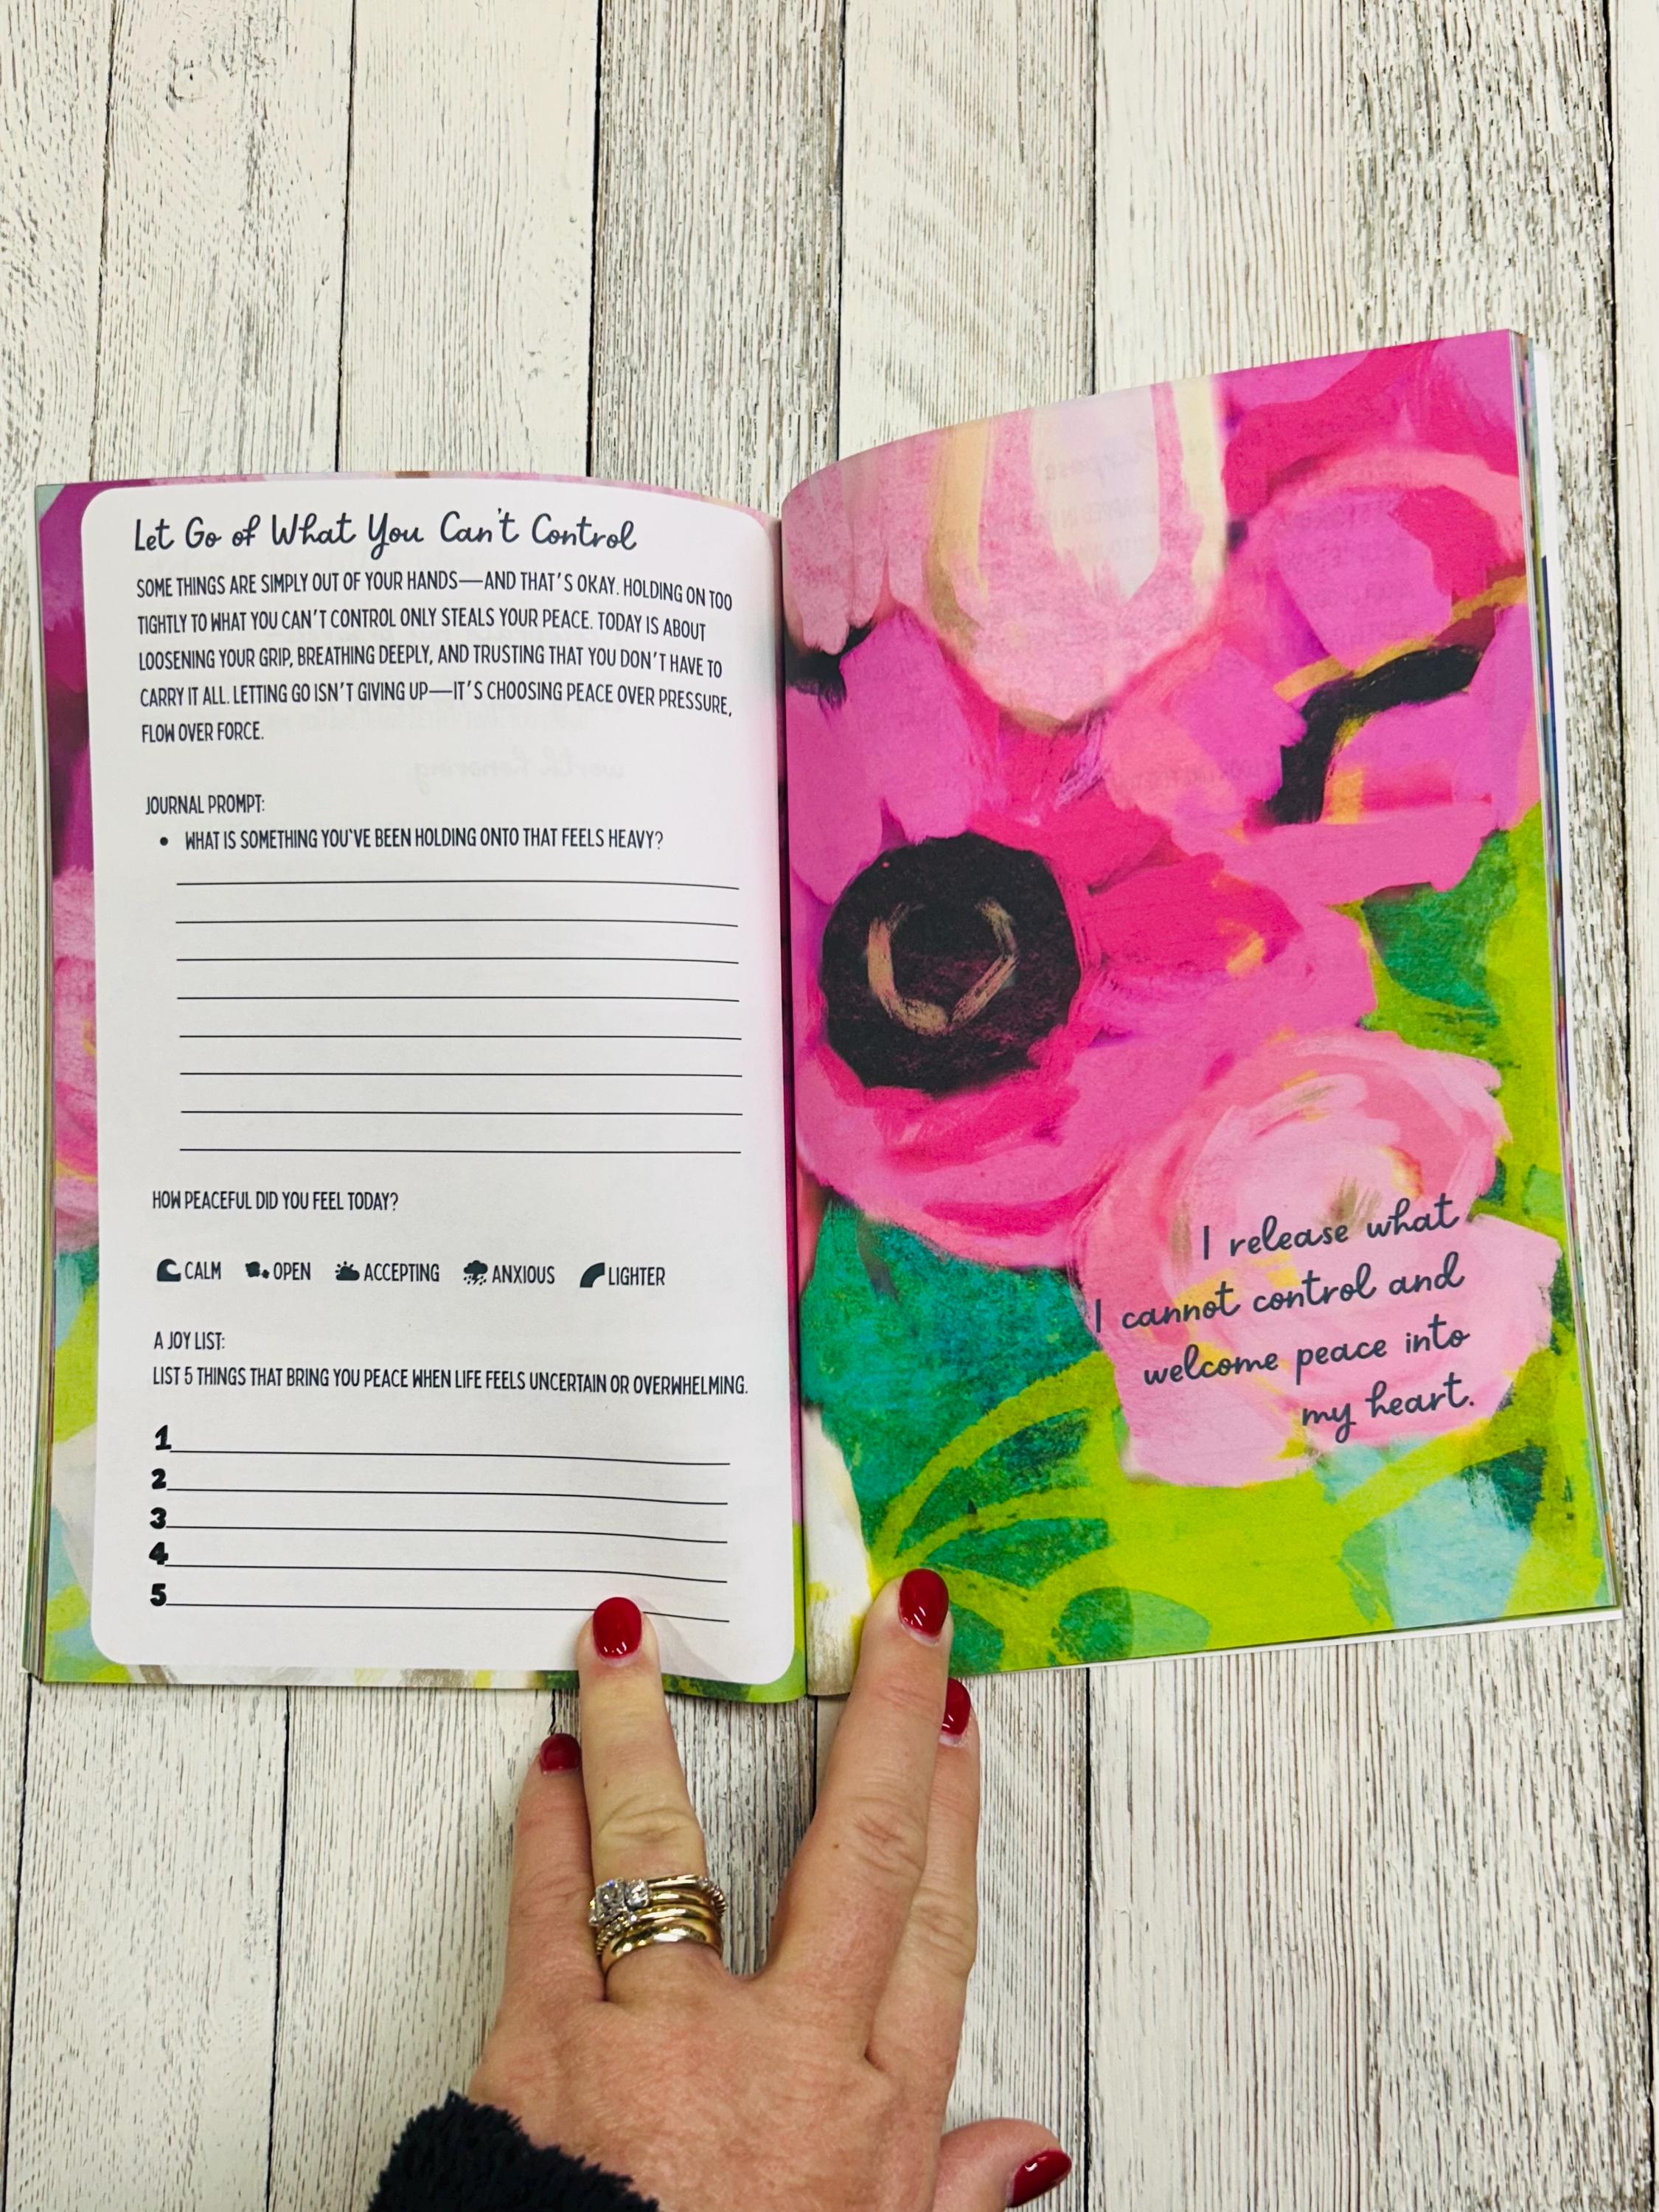 Let Go of What You Can't Control
SOME THINGS ARE SIMPLY OUT OF YOUR HANDS—AND THAT'S OKAY. HOLDING ON TOO
TIGHTLY TO WHAT YOU CAN'T CONTROL ONLY STEALS YOUR PEACE. TODAY IS ABOUT
LOOSENING YOUR GRIP, BREATHING DEEPLY, AND TRUSTING THAT YOU DON'T HAVE TO
CARRY IT ALL. LETTING GO ISN'T GIVING UP—IT'S CHOOSING PEACE OVER PRESSURE,
FLOW OVER FORCE.
JOURNAL PROMPT:
• WHAT IS SOMETHING YOU'VE BEEN HOLDING ONTO THAT FEELS HEAVY?
HOW PEACEFUL DID YOU FEEL TODAY?
CALM OPEN ACCEPTING ANXIOUS LIGHTER
A JOY LIST:
LIST 5 THINGS THAT BRING YOU PEACE WHEN LIFE FEELS UNCERTAIN OR OVERWHELMING.
1
2
3
4
5
I release what
I cannot control and
welcome peace into
my heart.